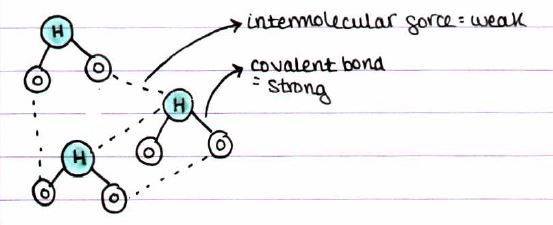 intermolecular force = weak
H
O
O
covalent bond
= strong
H
H
O
O
O
O